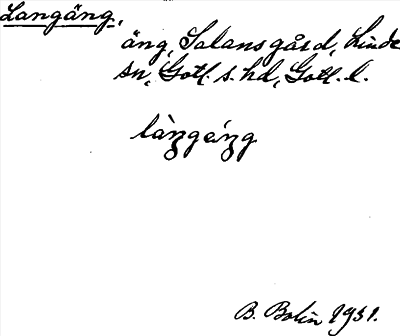 Langäng,
äng, Salans gård, Linde
sn, Gotl. s. hd, Gotl. l.
B. Bolin 1931.